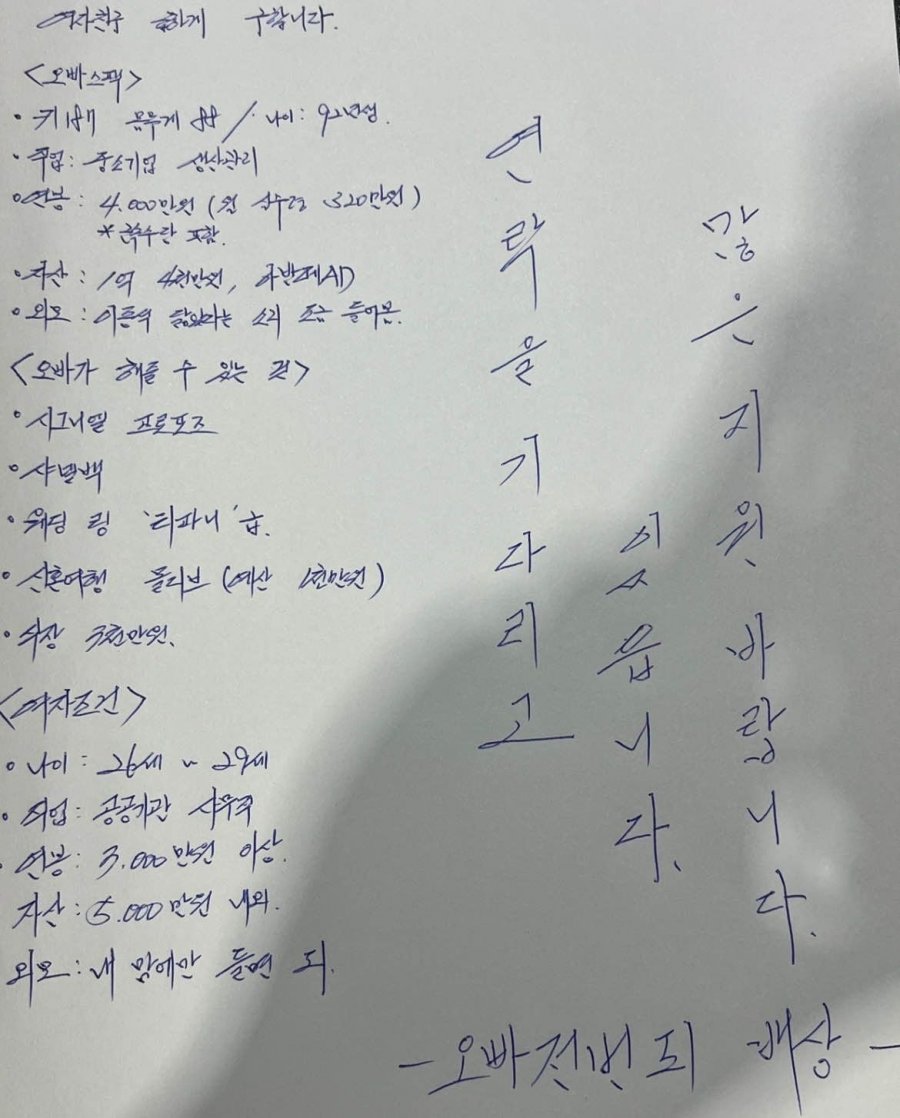 여자친구 급하게 구합니다.
<오빠스펙>
• 키 187 몸무게 88 / 나이: 92년생.
• 직업: 중소기업 생산관리
• 연봉: 4.000만원 (월 실수령 320만원)
* 특수당 포함.
• 자산: 1억 4천만원, 아반떼AD
• 외모: 이동욱 닮았다는 소리 조금 들어봄.
<오빠가 해줄 수 있는 것>
• 시그니엘 프로포즈
• 샤넬백
• 웨딩 링 '티파니'급.
• 신혼여행 몰디브 (예산 1천만원)
• 3천만원.
<여자조건>
• 나이: 26세 ~ 29세
• 직업: 공공기관 사무직
• 연봉: 3.000만원 이상.
자산: 5.000만원 내외.
외모: 내 맘에만 들면 돼.
연락을 기다리고
있습니다.
많은 지원 바랍니다.
- 오빠전번되 배상 -